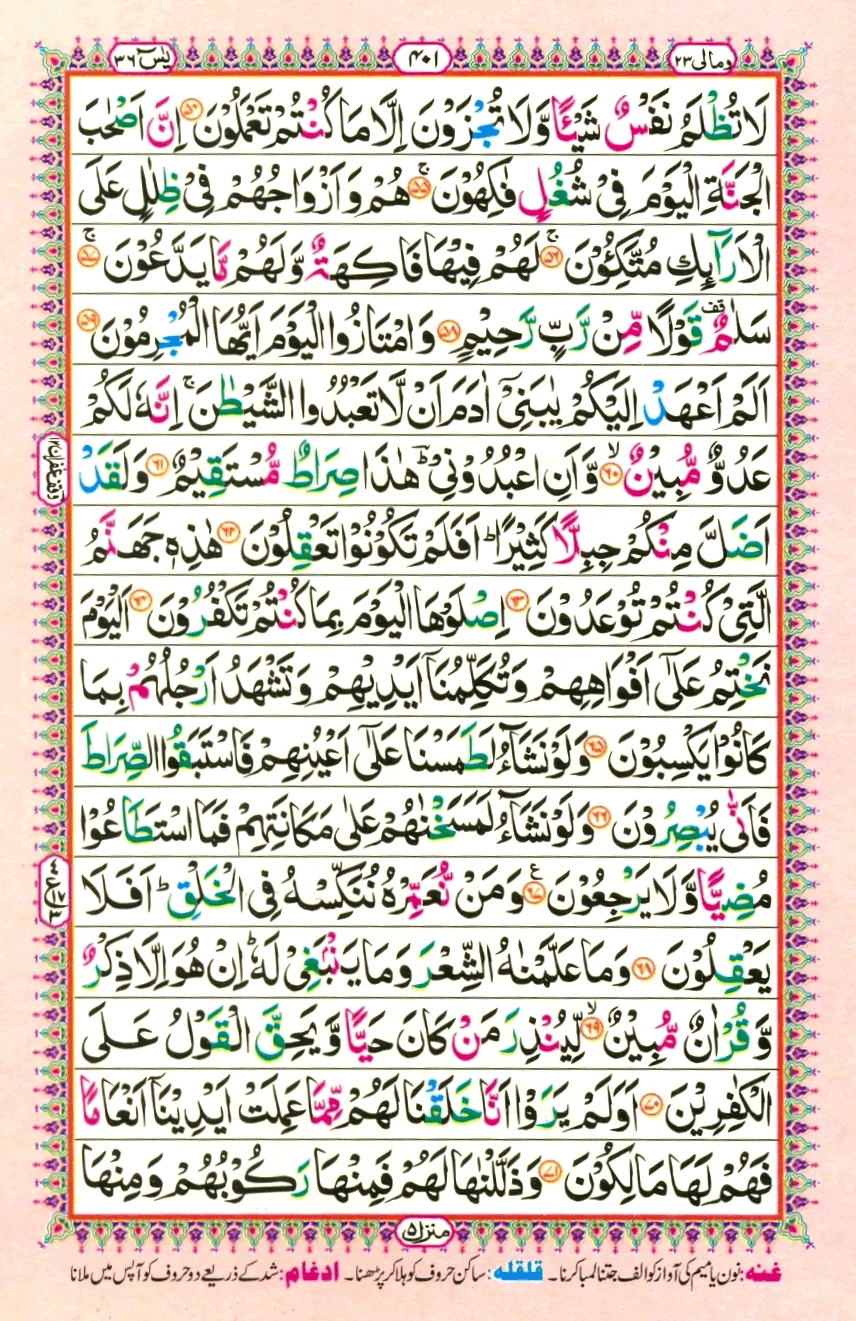 ومالی ۲۳
۴۰۱
یٰسٓ ۳۶
لَا تُظْلَمُ نَفْسٌ شَيْـًٔا وَّلَا تُجْزَوْنَ اِلَّا مَا كُنْتُمْ تَعْمَلُوْنَ ۵۴ اِنَّ اَصْحٰبَ
الْجَنَّةِ الْيَوْمَ فِيْ شُغُلٍ فٰكِهُوْنَ ۚ ۵۵ هُمْ وَاَزْوَاجُهُمْ فِيْ ظِلٰلٍ عَلَى
الْاَرَآىِٕكِ مُتَّكِـُٔوْنَ ۚ ۵۶ لَهُمْ فِيْهَا فَاكِهَةٌ وَّلَهُمْ مَّا يَدَّعُوْنَ ۚ ۵۷
سَلٰمٌ ۫ قَوْلًا مِّنْ رَّبٍّ رَّحِيْمٍ ۵۸ وَامْتَازُوا الْيَوْمَ اَيُّهَا الْمُجْرِمُوْنَ ۵۹
اَلَمْ اَعْهَدْ اِلَيْكُمْ يٰبَنِيْٓ اٰدَمَ اَنْ لَّا تَعْبُدُوا الشَّيْطٰنَ ۚ اِنَّهٗ لَكُمْ
عَدُوٌّ مُّبِيْنٌ ۙ ۶۰ وَّاَنِ اعْبُدُوْنِيْ ؕ هٰذَا صِرَاطٌ مُّسْتَقِيْمٌ ۶۱ وَلَقَدْ
اَضَلَّ مِنْكُمْ جِبِلًّا كَثِيْرًا ؕ اَفَلَمْ تَكُوْنُوْا تَعْقِلُوْنَ ۶۲ هٰذِهٖ جَهَنَّمُ
الَّتِيْ كُنْتُمْ تُوْعَدُوْنَ ۶۳ اِصْلَوْهَا الْيَوْمَ بِمَا كُنْتُمْ تَكْفُرُوْنَ ۶۴ اَلْيَوْمَ
نَخْتِمُ عَلٰٓى اَفْوَاهِهِمْ وَتُكَلِّمُنَآ اَيْدِيْهِمْ وَتَشْهَدُ اَرْجُلُهُمْ بِمَا
كَانُوْا يَكْسِبُوْنَ ۶۵ وَلَوْ نَشَآءُ لَطَمَسْنَا عَلٰٓى اَعْيُنِهِمْ فَاسْتَبَقُوا الصِّرَاطَ
فَاَنّٰى يُبْصِرُوْنَ ۶۶ وَلَوْ نَشَآءُ لَمَسَخْنٰهُمْ عَلٰى مَكَانَتِهِمْ فَمَا اسْتَطَاعُوْا
مُضِيًّا وَّلَا يَرْجِعُوْنَ ۶۷ ع وَمَنْ نُّعَمِّرْهُ نُنَكِّسْهُ فِي الْخَلْقِ ؕ اَفَلَا
يَعْقِلُوْنَ ۶۸ وَمَا عَلَّمْنٰهُ الشِّعْرَ وَمَا يَنْۢبَغِيْ لَهٗ ؕ اِنْ هُوَ اِلَّا ذِكْرٌ
وَّقُرْاٰنٌ مُّبِيْنٌ ۙ ۶۹ لِّيُنْذِرَ مَنْ كَانَ حَيًّا وَّيَحِقَّ الْقَوْلُ عَلَى
الْكٰفِرِيْنَ ۷۰ اَوَلَمْ يَرَوْا اَنَّا خَلَقْنَا لَهُمْ مِّمَّا عَمِلَتْ اَيْدِيْنَآ اَنْعَامًا
فَهُمْ لَهَا مَالِكُوْنَ ۷۱ وَذَلَّلْنٰهَا لَهُمْ فَمِنْهَا رَكُوْبُهُمْ وَمِنْهَا
وقف غفران ۱۲
منزل ۵
غنہ: نون یا میم کی آواز کو الف جتنا لمبا کرنا۔ قلقلہ: ساکن حروف کو ہلا کر پڑھنا۔ ادغام: شد کے ذریعے دو حروف کو آپس میں ملانا